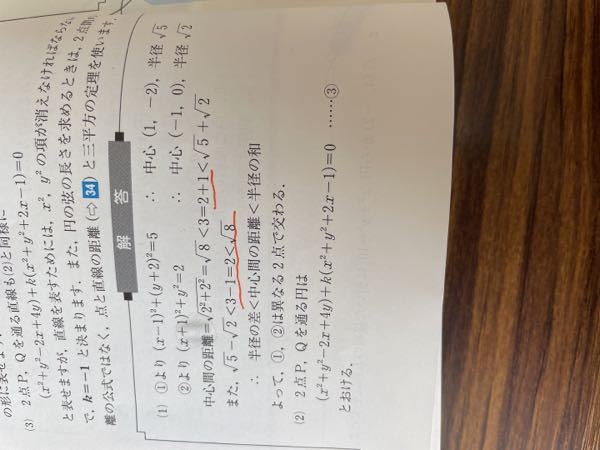 の形に表せよ
(3) 2点P, Qを通る直線も(2)と同様に
(x²+y²-2x+4y)+k(x²+y²+2x-1)=0
と表せますが，直線を表すためには，x², y² の項が消えなければならな
で，k=-1 と決まります．また，円の弦の長さを求めるときは，2点間
離の公式ではなく，点と直線の距離(⇨34)と三平方の定理を使います．
解 答
(1) ①より (x-1)²+(y+2)²=5 ∴ 中心 (1, -2)，半径 √5
②より (x+1)²+y²=2 ∴ 中心 (-1, 0)，半径 √2
中心間の距離=√2²+2²=√8<3=2+1<√5+√2
また，√5-√2<3-1=2<√8
∴ 半径の差<中心間の距離<半径の和
よって，①，②は異なる2点で交わる．
(2) 2点P, Qを通る円は
(x²+y²-2x+4y)+k(x²+y²+2x-1)=0 ……③
とおける．